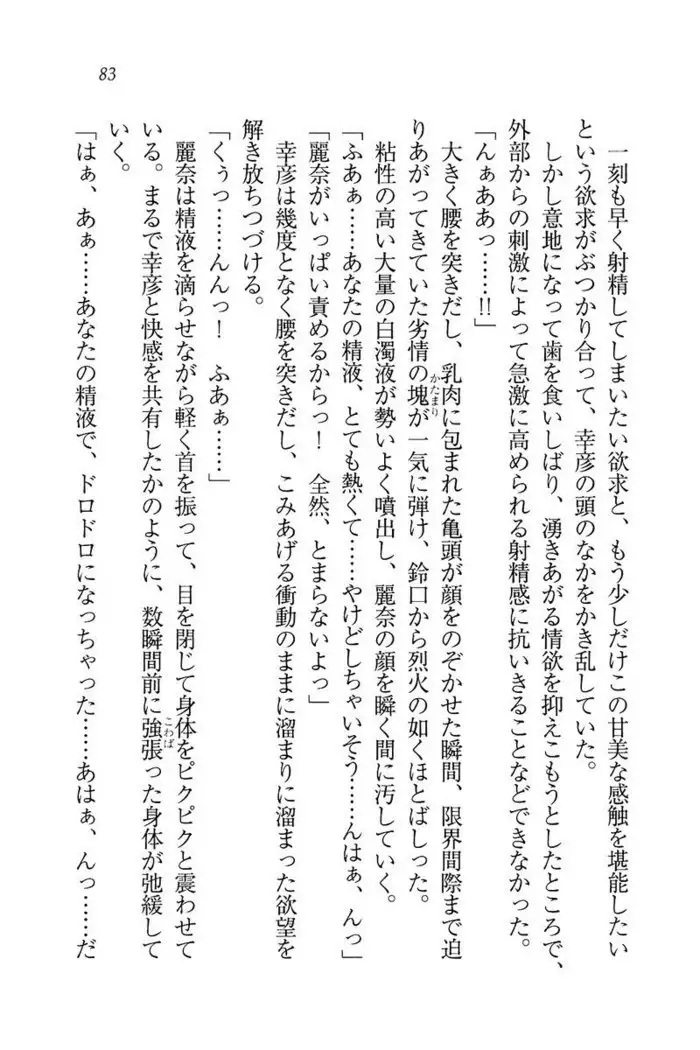 83
一刻も早く射精してしまいたい欲求と、もう少しだけこの甘美な感触を堪能したい
という欲求がぶつかり合って、幸彦の頭のなかをかき乱していた。
しかし意地になって歯を食いしばり、湧きあがる情欲を抑えこもうとしたところで、
外部からの刺激によって急激に高められる射精感に抗いきることなどできなかった。
「んぁああっ……!!」
大きく腰を突きだし、乳肉に包まれた亀頭が顔をのぞかせた瞬間、限界間際まで迫
りあがってきていた劣情の塊が一気に弾け、鈴口から烈火の如くほとばしった。
かたまり
粘性の高い大量の白濁液が勢いよく噴出し、麗奈の顔を瞬く間に汚していく。
「ふあぁ……あなたの精液、とても熱くて……やけどしちゃいそう……んはぁ、んっ」
「麗奈がいっぱい責めるからっ！　全然、とまらないよっ」
幸彦は幾度となく腰を突きだし、こみあげる衝動のままに溜まりに溜まった欲望を
解き放ちつづける。
「くぅっ……んんっ！　ふあぁ……」
麗奈は精液を滴らせながら軽く首を振って、目を閉じて身体をピクピクと震わせて
いる。まるで幸彦と快感を共有したかのように、数瞬間前に強張った身体が弛緩して
こわば
いく。
「はぁ、あぁ……あなたの精液で、ドロドロになっちゃった……あはぁ、んっ……だ